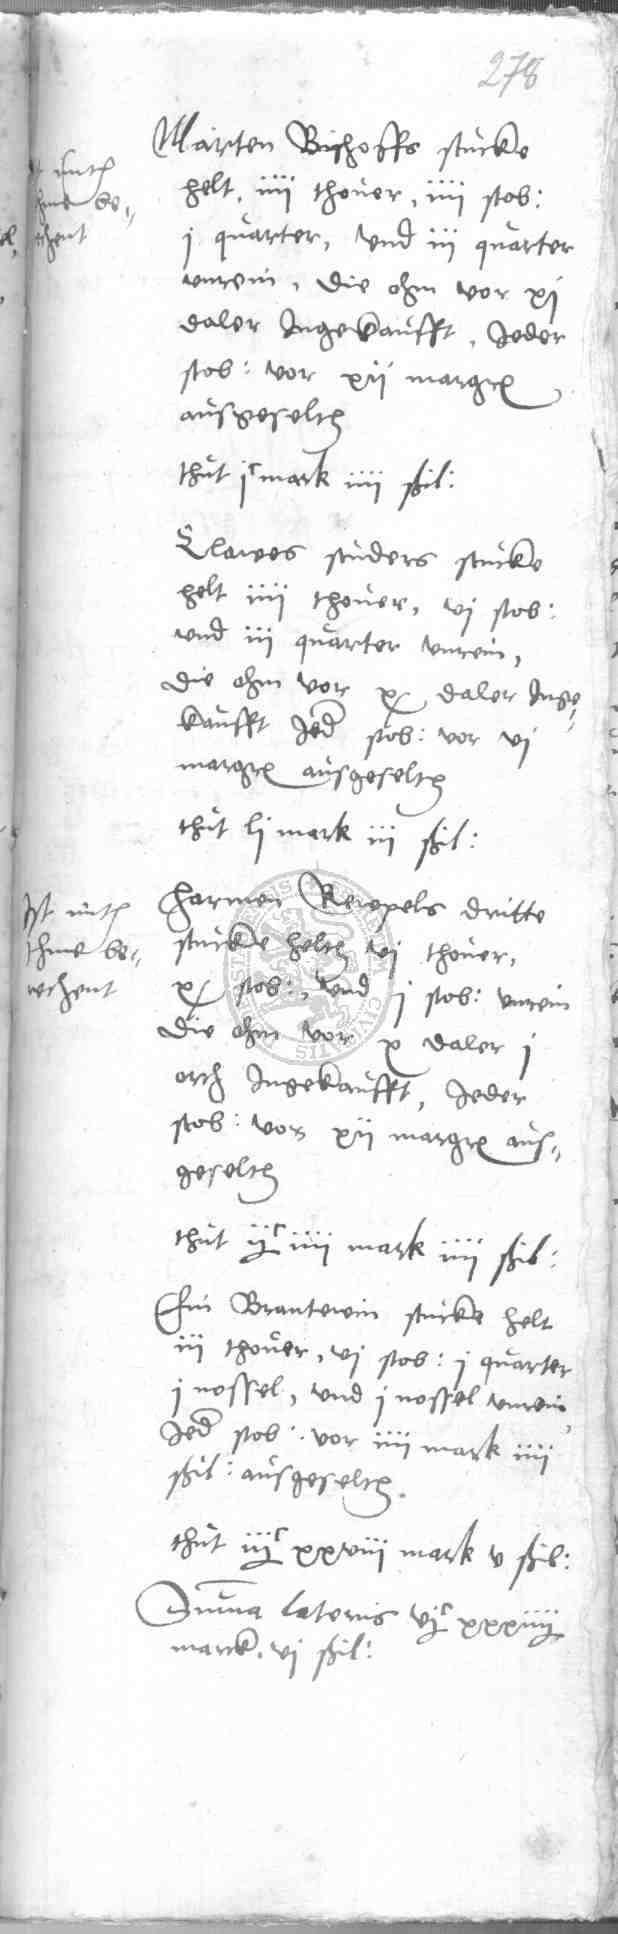 278
Marten Bischoffs stucke
helt, iiii thouer, iiii stob:
j quarter, vnd iii quarter
vnrein, die ohm vor xj
daler Ingekaufft, Jeder
stob: vor xii margr
ausgeselt
thut jc mark iiii ßil:
Clawes studers stucke
helt iiii thouer, vj stob:
vnd iii quarter vnrein,
die ohm vor x daler Inge-
kaufft Jed stob: vor vj
margr ausgeselt
thut lj mark iii ßil:
Ist mit
thme be-
rechent
Harmen Rewpels dritte
stucke helt vj thouer,
x stob:, vnd j stob: vnrein
die ohm vor x daler j
orth Ingekaufft, Jeder
stob: vor xii margr aus-
geselt
thut iic iiii mark iiii ßil:
Ein Brantewin stucke helt
iii thouer, vj stob: j quarter
j nossel, vnd j nossel vnrein,
Jed stob: vor iiii mark iiii
ßil: ausgeselt.
thut iiic xxviii mark v ßil:
Summa lateris vjc xxxiiii
marck, vj ßil: